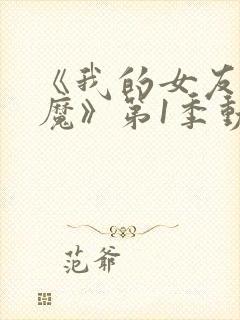 《我的女友
魔》第1季
范爷